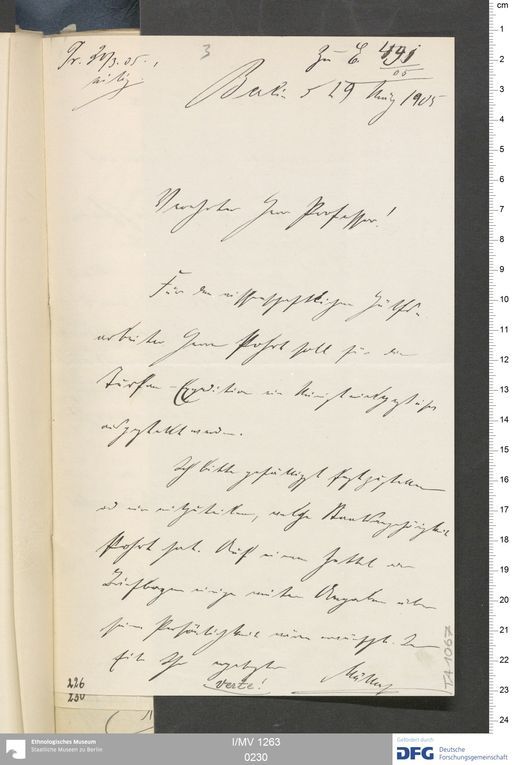 Pr. 29/3. 05.
eilig.
3
zu E. 491/05
Berlin d 29 März 1905
Verehrter Herr Professor!
Für den wissenschaftlichen Hülfs-
arbeiter Herrn Pohrt soll für die
Turfan-Expedition ein Ministerialpaß
ausgestellt werden.
Ich bitte gefälligst festzustellen
und mir mitzuteilen, welche Staatsangehörigkeit
Pohrt hat. Auf einem Zettel
einige weitere Angaben über
seine Persönlichkeit wären erwünscht. In
Eile Ihr ergebenster
Müller
verte!
226
230
TA 1067
Ethnologisches Museum
Staatliche Museen zu Berlin
I/MV 1263
0230
Gefördert durch
DFG Deutsche
Forschungsgemeinschaft
cm
1
2
3
4
5
6
7
8
9
10
11
12
13
14
15
16
17
18
19
20
21
22
23
24